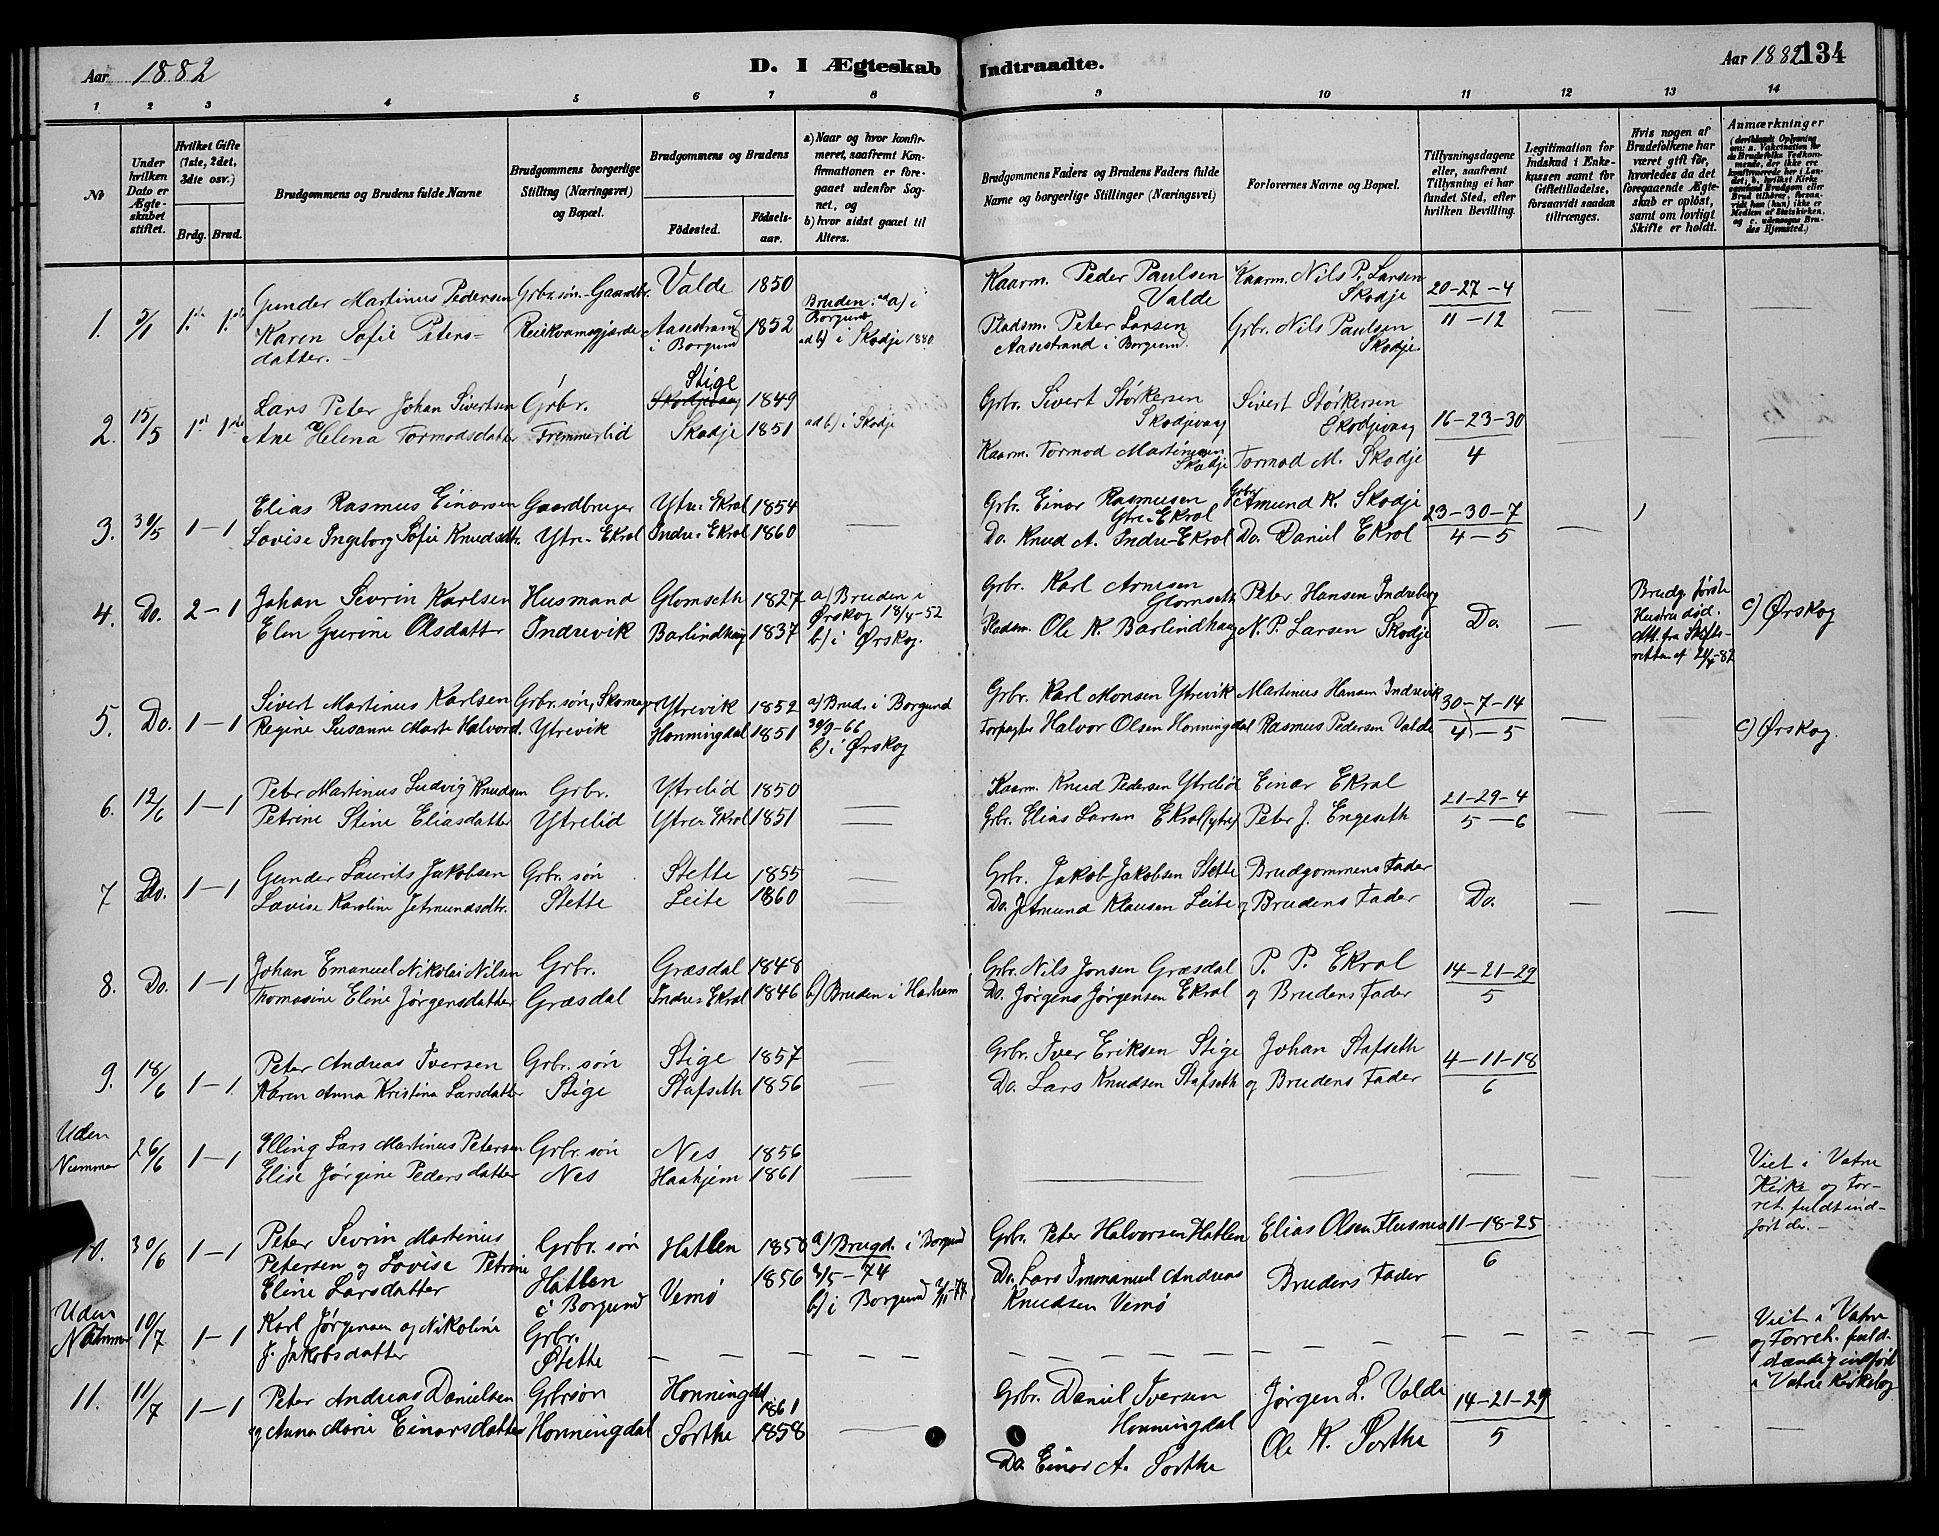 Aar 1882
D. I Ægteskab Indtraadte.
Aar 1882 134
1 2 3 4 5 6 7 8 9 10 11 12 13 14
No
Under hvilken Dato er Ægteskabet stiftet.
Hvilket Gifte (1ste, 2det, 3die osv.)
Brdg. Brud.
Brudgommens og Brudens fulde Navne
Brudgommens borgerlige Stilling (Næringsvei) og Bopæl.
Brudgommens og Brudens
Fødested.
Fødsels-aar.
a) Naar og hvor konfirmeret, saafremt Konfirmationen er foregaaet udenfor Sognet, og
b) hvor sidst gaaet til Alters.
Brudgommens Faders og Brudens Faders fulde Navne og borgerlige Stillinger (Næringsvei)
Forlovernes Navne og Bopæl.
Tillysningsdagene eller, saafremt Tillysning ei har fundet Sted, efter hvilken Bevilling.
Legitimation for Indskud i Enkekassen samt for Giftetilladelse, forsaavidt saadan tiltrænges.
Hvis nogen af Brudefolkene har været gift før, hvorledes da det foregaaende Ægteskab er opløst, samt om lovligt Skifte er holdt.
Anmærkninger
(deriblandt Oplysning om: a. Vakcination for de Brudefolks Vedkommende, der ikke ere konfirmerede her i Landet; b. hvilket Kirkesamfund Brudgom eller Brud tilhører, forsaavidt han (hun) ikke er Medlem af Statskirken, og c. udensogns Brudes Hjemsted.)
1. 2/1 1ste 1ste
Gunder Martinus Pedersen Grbr.søn - Gaardbr. Valde 1850
Karen Sofie Peters- Reiekvamsgjærde Aasestrand 1852
datter. i Borgund
Bruden: ad a) i
Borgund
ad b) i Skodje 1880
Kaarm. Peder Paulsen
Valde
Pladsm. Peter Larsen
Aasestrand i Borgund.
Kaarm. Nils P. Larsen
Skodje
Grbr. Nils Paulsen
Skodje
20-27-4
11-12
2. 15/5 1ste 1ste
Stige
Lars Peter Johan Sivertsen Grbr. Skodjevaag 1849
Ane Helena Tormodsdatter Fremmerlid Skodje 1851 ad b) i Skodje
Grbr. Sivert Størkersen
Skodjevaag
Kaarm. Tormod Martinussen
Skodje
Sivert Størkersen
Skodjevaag
Tormod M. Skodje
16-23-30
4
3. 30/5 1-1
Elias Rasmus Einarsen Gaardbruger Ytre-Ekrol 1854
Lovise Ingeborg Sofie Knudsdtr. Ytre-Ekrol Indre-Ekrol 1860
Grbr. Einar Rasmusen
Ytre-Ekrol
Do. Knud A. Indre-Ekrol
Grbr. Amund K. Skodje
Do. Daniel Ekrol
23-30-7
4-5
4. Do. 2-1
Johan Sevrin Karlsen Husmand Glomseth 1827
Elen Gurine Olsdatter Indrevik Barlindhaug 1837
a) Bruden i
Ørskog 18/4-52
b) i Ørskog.
Grbr. Karl Arnesen
Glomseth
Pladsm. Ole K. Barlindhaug
Peter Hansen Indreberg
N. P. Larsen Skodje
Do.
Brudg. første
Hustru død.
Att. fra Skifte-
retten af 21/4-82
c) Ørskog
5. Do. 1-1
Sivert Martinus Karlsen Grbr.søn, Skomager Ytrevik 1852
Regine Susanne Marte Halvord. Ytrevik Honningdal 1851
a) Brud. i Borgund
30/9-66
b) i Ørskog
Grbr. Karl Monsen Ytrevik
Forpagter Halvor Olsen Honningdal
Martinus Hansen Indrevik
Rasmus Pedersen Valde
30-7-14
4-5
c) Ørskog.
6. 12/6 1-1
Peter Martinus Ludvig Knudsen Grbr. Ytrelid 1850
Petrine Stine Eliasdatter Ytrelid Ytre-Ekrol 1851
Kaarm. Knud Pedersen Ytrelid
Grbr. Elias Larsen Ekrol (ytre)
Einar Ekrol
Peter J. Engeseth
21-29-4
5-6
7 Do. 1-1
Gunder Laurits Jakobsen Grbr.søn Stette 1855
Lovise Karoline Jetmundsdtr. Stette Leite 1860
Grbr. Jakob Jakobsen Stette
Do. Jetmund Klausen Leite
Brudgommens Fader
og Brudens Fader
Do.
8. Do. 1-1
Johan Emanuel Nikolai Nilsen Grbr. Græsdal 1848
Thomasine Eline Jørgensdatter Græsdal Indre-Ekrol 1846 b) Bruden i Harham
Grbr. Nils Jonsen Græsdal
Do. Jørgens Jørgensen Ekrol
P. P. Ekrol
og Brudens Fader
14-21-29
5
9. 18/6 1-1
Peter Andreas Iversen Grbr. søn Stige 1857
Karen Anna Kristina Larsdatter Stige Stafseth 1856
Grbr. Iver Eriksen Stige
Do. Lars Knudsen Stafseth
Johan Stafseth
og Brudens Fader
4-11-18
6
Uden
Nummer 26/6 1-1
Elling Lars Martinus Petersen Grbr. søn Nes 1856
Elise Jørgine Pedersdatter Nes Haahjem 1861
Viet i Vatne
Kirke og For-
ret. fuldt ind-
ført der. -
10. 30/6 1-1
Peter Sevrin Martinus Grbr. søn Hatlen 1858
Petersen og Lovise Petrine Hatlen 1856
Eline Larsdatter i Borgund Vemø
a) Brugd. i Borgund
3/5-74
b) i Borgund
Grbr. Peter Halvorsen Hatlen
Do. Lars Immanuel Andreas
Knudsen Vemø
Elias Olsen Flusnes
Brudens Fader
11-18-25
6
Uden
Nummer 10/7 1-1
Karl Jørgensen og Nikoline Grbr.
J. Jakobsdatter Stette
Viet i Vatne
og Forret. fuld-
stændig indført
i Vatne Kirkebog
11. 11/7 1-1
Peter Andreas Danielsen Grbrsøn Honningdal 1861
og Anna Marie Einarsdatter Honningdal Sorthe 1858
Grbr. Daniel Iversen
Honningdal
Do. Einar A. Sorthe
Jørgen L. Valde
Ole K. Sorthe
14-21-29
5